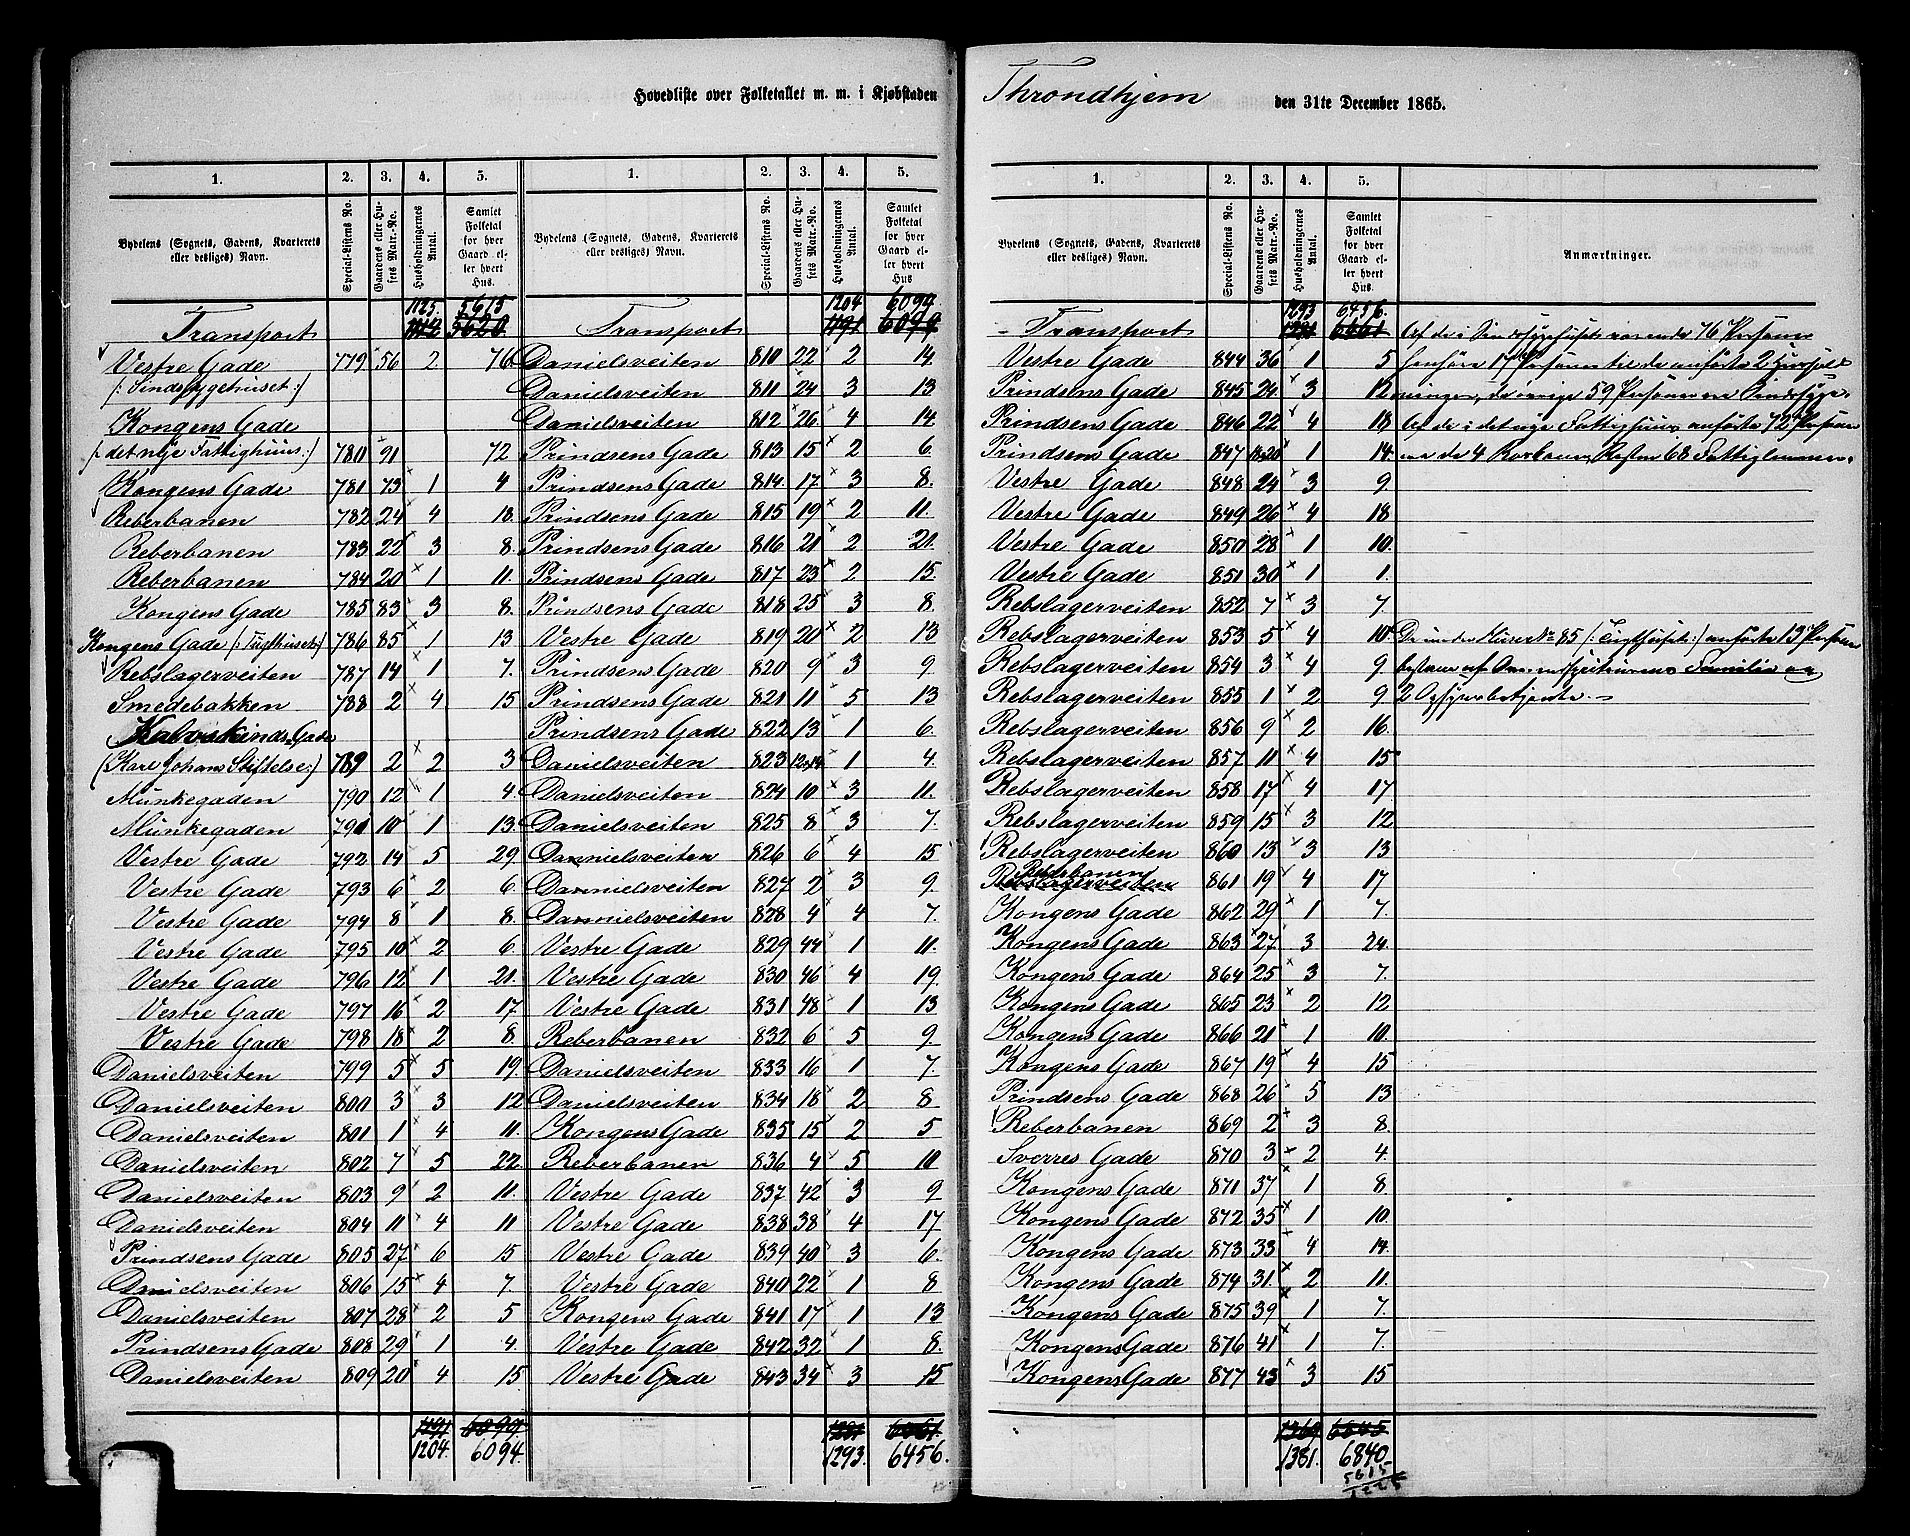 Hovedliste over Folketallet m. m. i Kjøbstaden Throndhjem den 31te December 1865.
1. 2. 3. 4. 5. 1. 2. 3. 4. 5.
Bydelens (Sognets, Gadens, Kvarterets eller desliges) Navn. Special-Listens No. Gaardens eller Husets Matr.-No. Husholdningernes Antal. Samlet Folketal for hver Gaard eller hvert Hus. Bydelens (Sognets, Gadens, Kvarterets eller desliges) Navn. Special-Listens No. Gaardens eller Husets Matr.-No. Husholdningernes Antal. Samlet Folketal for hver Gaard eller hvert Hus.
1125. 5615 1204 6094
Transport 5620 Transport 1191 6099
Vestre Gade 779 56 2. 76 Danielsveiten 810 22 2 14
(: Sindssygehuset :) Danielsveiten 811 24 3 13
Kongens Gade Danielsveiten 812 26 4 14
(: det nye Fattighuus :) 780 91 72 Prindsens Gade 813 15 2 6
Kongens Gade 781 73 1 4 Prindsens Gade 814 17 3 8.
Reberbanen 782 24 4 18 Prindsens Gade 815 19 2 11.
Reberbanen 783 22 3 8. Prindsens Gade 816 21 2 21.
Reberbanen 784 20 1 11. Prindsens Gade 817 23 2 15.
Kongens Gade 785 83 3 8. Prindsens Gade 818 25 3 8.
Kongens Gade (: Tugthuset :) 786 85 1 13 Vestre Gade 819 20 2 13
Rebslagerveiten 787 14 1 7. Prindsens Gade 820 9 3 9.
Smedebakken 788 2 4 15 Prindsens Gade 821 11 5 13
Kalvskinds Gade Prindsens Gade 822 13 1 6.
(Karl Johans Stiftelse :) 789 2 2 3 Danielsveiten 823 12&14 1 4.
Munkegaden 790 12 1 4. Danielsveiten 824 10 3 11.
Munkegaden 791 10 1 13. Danielsveiten 825 8 3 7.
Vestre Gade 792 14 5 29. Dannielsveiten 826 6 4 15
Vestre Gade 793 6 2 6. Dannielsveiten 827 2 3 9.
Vestre Gade 794 8 1 8. Dannielsveiten 828 4 4 7.
Vestre Gade 795 10 2 6. Vestre Gade 829 44 1 11.
Vestre Gade 796 12 1 21. Vestre Gade 830 46 4 19.
Vestre Gade 797 16 2 17 Vestre Gade 831 48 1 13
Vestre Gade 798 18 2 8. Reberbanen 832 6 5 9.
Danielsveiten 799 5 5 19. Danielsveiten 833 16 1 7.
Danielsveiten 800 3 3 12 Danielsveiten 834 18 2 8
Danielsveiten 801 1 4 11. Kongens Gade 835 15 2 5
Danielsveiten 802 7 5 22. Reberbanen 836 4 5 10
Danielsveiten 803 9 2 11. Vestre Gade 837 42 3 9
Danielsveiten 804 11 4 11 Vestre Gade 838 38 4 17
Prindsens Gade 805 27 6 15 Vestre Gade 839 40 3 6.
Danielsveiten 806 15 4 7. Vestre Gade 840 22 1 8
Danielsveiten 807 28 2 5 Kongens Gade 841 17 1 13
Prindsens Gade 808 29 1 4. Vestre Gade 842 32 1 8.
Danielsveiten 809 20 4 15 Vestre Gade 843 34 3 15
1191 6099 1281 6461
1204. 6094. 1293. 6456.
1. 2. 3. 4. 5.
Bydelens (Sognets, Gadens, Kvarterets eller desliges) Navn. Special-Listens No. Gaardens eller Husets Matr.-No. Husholdningernes Antal. Samlet Folketal for hver Gaard eller hvert Hus. Anmærkninger.
1293 6456.
Transport 1281 6461 Af de i Sindssygehuset værende 76 Personer
Vestre Gade 844 36 1 5 henhøre 17 Personer til de anførte 2 Hushold-
Prindsens Gade 845 24 3 12 ninger, de øvrige 59 Personer ere Sindssyge.
Prindsens Gade 846 22 4 18 Af de i det nye Fattighuus anførte 72 Personer
Prindsens Gade 847 18&20 1 14 ere de 4 Resten 68 Fattiglemmer.
Vestre Gade 848 24 3 9
Vestre Gade 849 26 4 18
Vestre Gade 850 28 1 10.
Vestre Gade 851 30 1 1.
Rebslagerveiten 852 7 3 7.
Rebslagerveiten 853 5 4 10. De under Huset No 85 (: Tugthuset :) anførte 13 Personer
Rebslagerveiten 854 3 4 9 bestaaer af Familie og
Rebslagerveiten 855 1 2 9 2 Opsynsbetjente.
Rebslagerveiten 856 9 2 16.
Rebslagerveiten 857 11 4 15
Rebslagerveiten 858 17 4 17.
Rebslagerveiten 859 15 3 12
Rebslagerveiten 860 13 3 13
Reberbanen
Rebslagerveiten 861 19 4 17
Kongens Gade 862 29 1 7.
Kongens Gade 863 27. 3 24.
Kongens Gade 864 25 3 7.
Kongens Gade 865 23 2 12
Kongens Gade 866 21 1 10.
Kongens Gade 867 19 4 15
Prindsens Gade 868 26 5 13
Reberbanen 869 2 3 8.
Sverres Gade 870 3 2 4.
Kongens Gade 871 37 1 8
Kongens Gade 872 35 1 10.
Kongens Gade 873 33 4 14.
Kongens Gade 874 31. 2 11.
Kongens Gade 875 39 1 7.
Kongens Gade 876 41 1 7.
Kongens Gade 877 43 3 15
1369 6845
1381. 6840
5615
1225